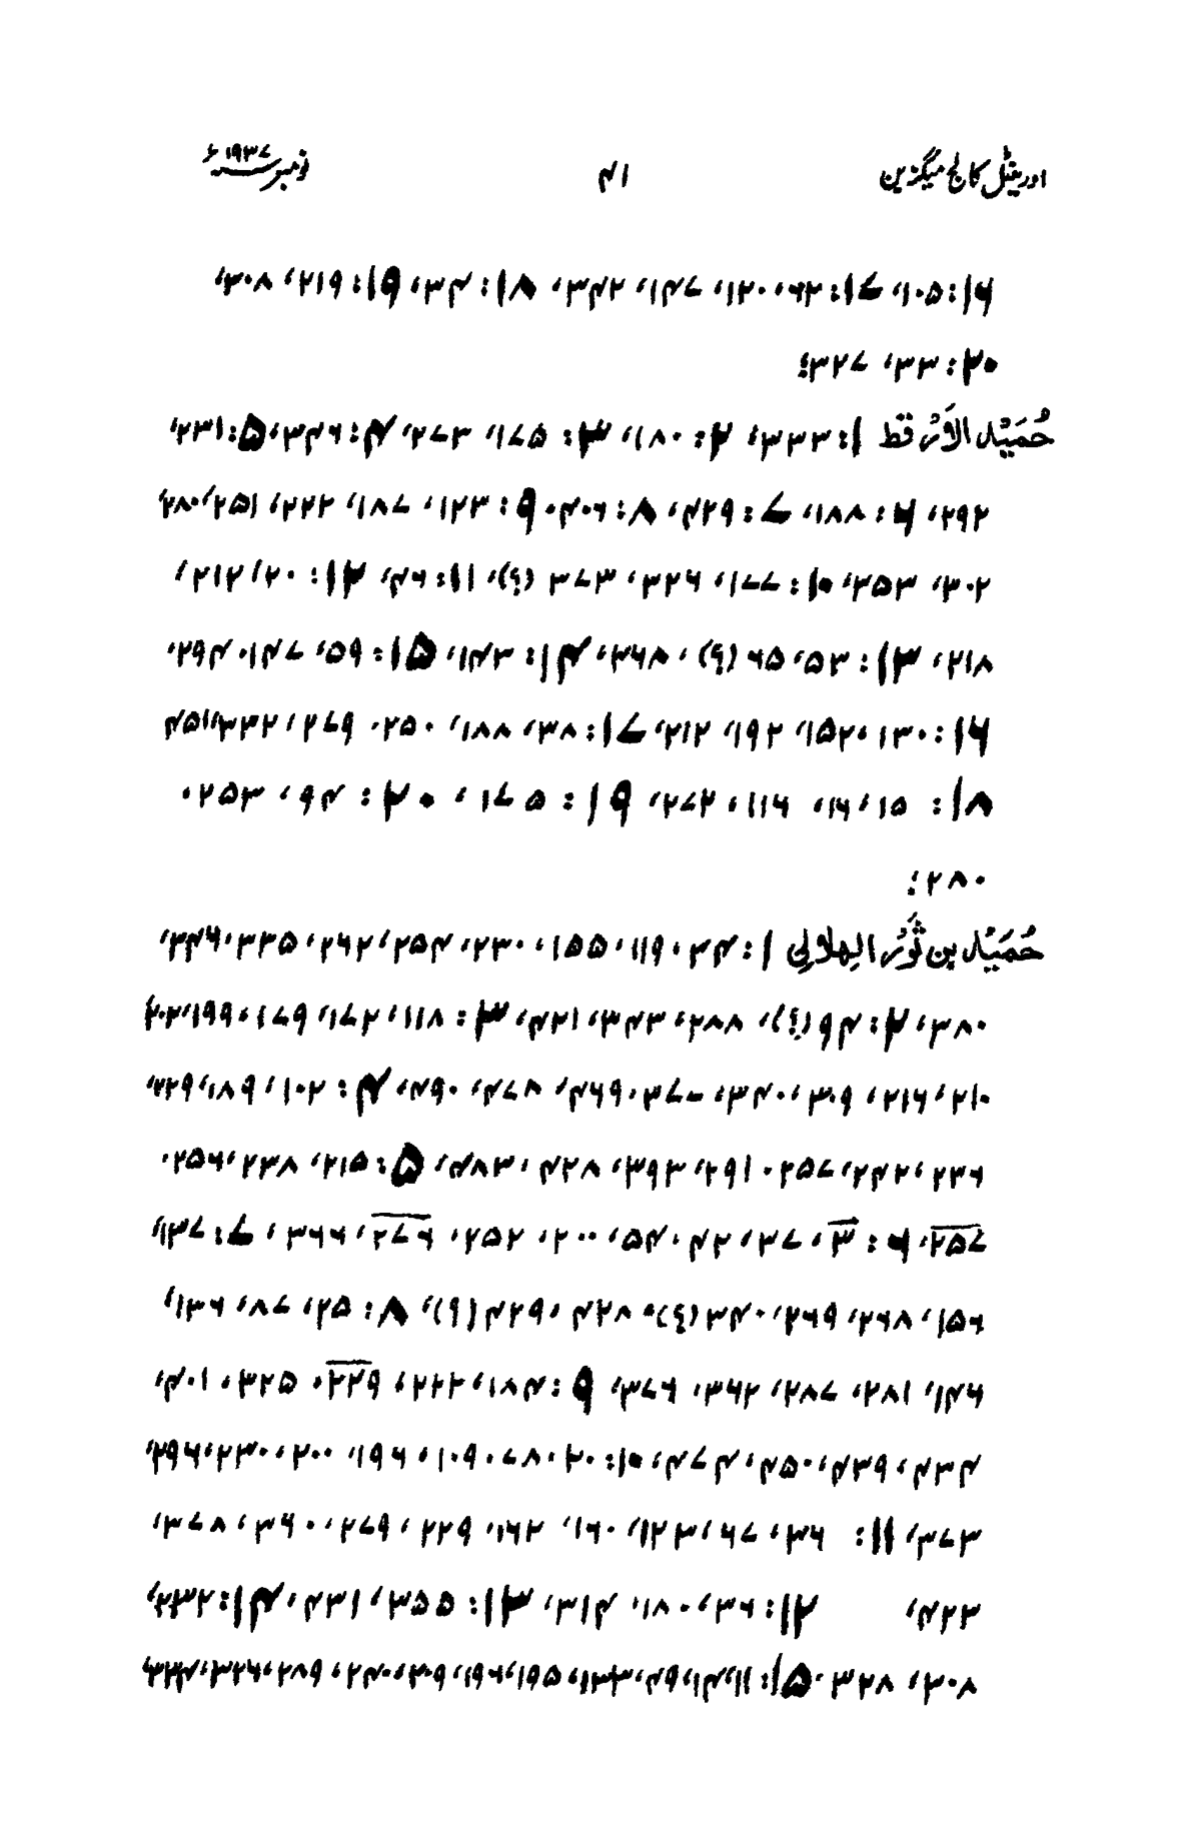 اورینٹل کالج میگزین ۴۱ نومبر سنہ ۱۹۳۷ء
۱۶: ۱۰۵، ۱۷: ۶۲، ۱۲۰، ۱۴۷، ۳۴۲، ۱۸: ۳۴، ۱۹: ۲۱۹، ۳۰۸،
۲۰: ۳۳، ۳۲۷؛
حُمَیْد الاَرْقط ۱: ۳۳۳؛ ۲: ۱۸۰، ۳: ۱۷۵، ۲۷۳، ۴: ۳۴۶، ۵: ۲۳۱،
۲۹۲، ۶: ۱۸۸، ۷: ۴۲۹، ۸: ۴۰۶، ۹: ۱۲۳، ۱۸۷، ۲۲۲، ۲۵۱، ۲۸۰،
۳۰۲، ۳۵۳، ۱۰: ۱۷۷، ۳۲۶، ۳۷۳ (؟)، ۱۱: ۴۶، ۱۲: ۲۰، ۲۱۲،
۲۱۸، ۱۳: ۵۳، ۶۵ (؟)، ۳۶۸، ۱۴: ۱۴۳، ۱۵: ۵۹، ۱۴۷، ۲۹۴،
۱۶: ۱۳۰، ۱۵۲، ۱۹۲، ۲۱۲، ۱۷: ۳۸، ۱۸۸، ۲۵۰، ۲۷۹، ۳۳۲، ۴۵۱
۱۸: ۱۵، ۱۶، ۱۱۶، ۲۷۲، ۱۹: ۱۷۵، ۲۰: ۹۴، ۲۵۳،
۲۸۰؛
حُمَیْد بن ثَوْر الہِلالِی ۱: ۳۴، ۱۱۹، ۱۵۵، ۲۳۰، ۲۵۴، ۲۶۲، ۳۳۵، ۳۴۶،
۳۸۰، ۲: ۹۴ (؟)، ۲۸۸، ۳۴۳، ۴۲۱، ۳: ۱۱۸، ۱۷۲، ۱۷۹، ۱۹۹، ۲۰۲،
۲۱۰، ۲۱۶، ۳۰۹، ۳۴۰، ۳۷-، ۴۶۹، ۴۷۸، ۴۹۰، ۴: ۱۰۲، ۱۸۹، ۲۲۹،
۲۳۶، ۲۴۲، ۲۵۷، ۲۹۱، ۳۹۲، ۴۲۸، ۴۸۳، ۵: ۲۱۵، ۲۳۸، ۲۵۶،
۲۵۷، ۶: ۳، ۳۷، ۴۲، ۵۴، ۲۰۰، ۲۵۲، ۲۷۶، ۳۶۶، ۷: ۱۳۷،
۱۵۶، ۲۶۸، ۲۶۹، ۳۴۰ (؟)، ۴۲۸، ۴۲۹ (؟)، ۸: ۲۵، ۸۷، ۱۳۶،
۱۴۶، ۲۸۱، ۲۸۷، ۳۶۲، ۳۷۶، ۹: ۱۸۴، ۲۲۲، ۲۲۹، ۳۲۵، ۴۰۱،
۴۳۴، ۴۳۹، ۴۵۰، ۴۷۴، ۱۰: ۲۰، ۷۸، ۱۰۹، ۱۹۶، ۲۰۰، ۲۳۰، ۲۹۶،
۳۷۳، ۱۱: ۳۶، ۷۶، ۱۲۳، ۱۶۰، ۱۶۲، ۲۲۹، ۲۷۹، ۳۶۰، ۳۷۸،
۴۲۳، ۱۲: ۳۶، ۱۸۰، ۳۱۴، ۱۳: ۳۵۵، ۴۳۱، ۱۴: ۲۳۲،
۳۰۸، ۳۲۸، ۱۵: ۱۱، ۱۴، ۴۹، ۱۳۳، ۱۹۵، ۱۹۶، ۲۰۹، ۲۴۰، ۲۸۹، ۳۲۶،